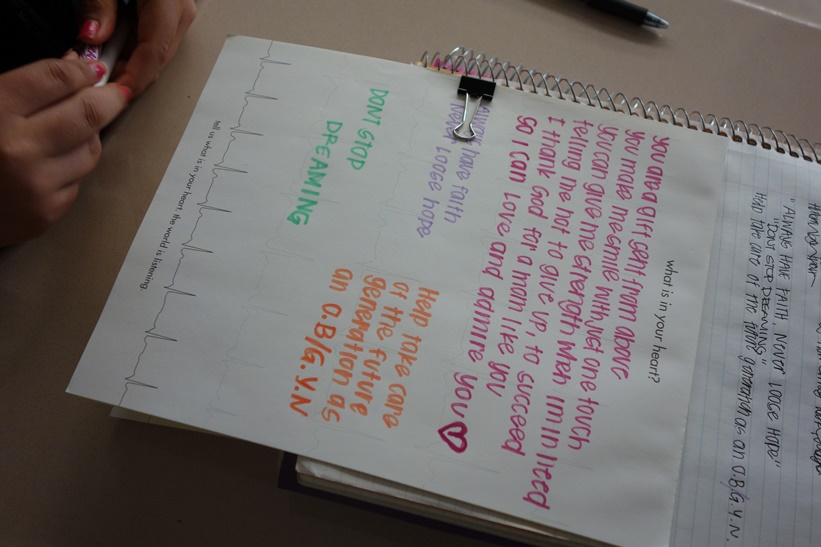 what is in your heart?
you are a gift sent from above
you make me smile with just one touch
you can give me strength when im in need
telling me not to give up, to succeed
I thank God for a mom like you
So I can Love and admire you
Always have faith
Never Loose hope
DONT STOP
DREAMING
Help take care
of the future
generation as
an O.B/G.Y.N
tell us what is in your heart. the world is listening.
"ALWAYS HAVE FAITH, NEVER LOOSE HOPE"
"DONT STOP DREAMING"
Help take care of the future generation as an O.B/G.Y.N.